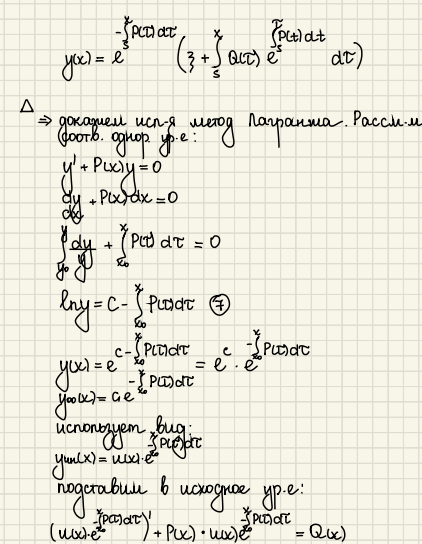 y(x) = e^{-∫_s^x P(τ)dτ} (ξ + ∫_s^x Q(τ) e^{∫_s^τ P(t)dt} dτ)
Δ ⇒ докажем исп-я метод Лагранжа. Рассм-м
соотв. однор. ур-е:
y' + P(x)y = 0
dy/dx + P(x)dx = 0
∫_{y_0}^y dy/y + ∫_{x_0}^x P(τ) dτ = 0
ln y = C - ∫_{x_0}^x P(τ)dτ ⑦
y(x) = e^{C - ∫_{x_0}^x P(τ)dτ} = e^c · e^{-∫_{x_0}^x P(τ)dτ}
y_{оо}(x) = C_1 e^{-∫_{x_0}^x P(τ)dτ}
использует вид:
y_{чн}(x) = u(x)·e^{-∫_{x_0}^x P(τ)dτ}
подставим в исходное ур-е:
(u(x)·e^{-∫_{x_0}^x P(τ)dτ})' + P(x)·u(x)e^{-∫_{x_0}^x P(τ)dτ} = Q(x)